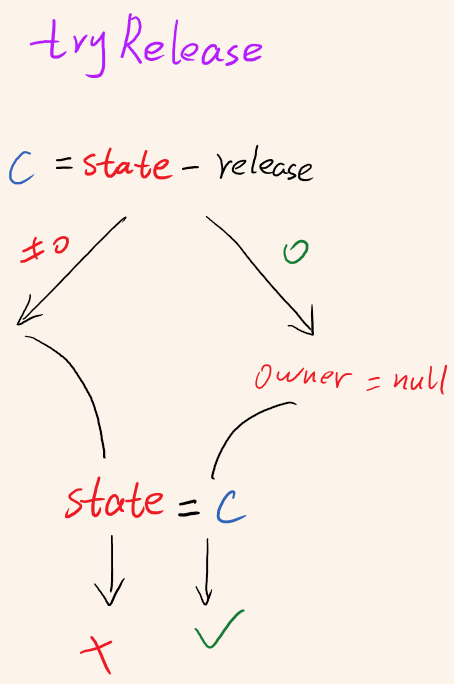 tryRelease
C = state - release
≠0
0
owner = null
state = C